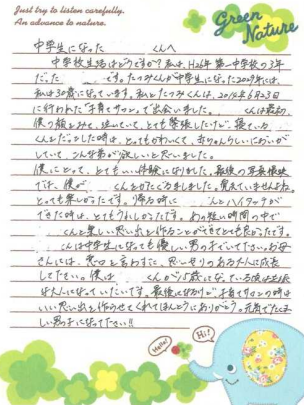 Just try to listen carefully.
An advance to nature.
Green
Nature
中学生になった くんへ
中学校生活はどうですか?私は、H26年 第一中学校の3年
だった です。たつみくんが中学生になった2027年には、
私は30歳になっています。私とたつみくんは、2014年6月23日
に行われた「子育てサロン」で出会いました。 くんは最初、
僕の顔をみて、泣いていて、とても緊張したけど、寝ている
くんをだっこした時は、とてもかわいくて、赤ちゃんらしいにおいが
していて こんな弟が欲しいと思いました。
僕にとって、とてもいい体験になりました。最後の写真撮映
では、僕が くんとのたにうつりました。覚えていませんよね。
とっても楽しかったです。帰る時に んとハイタッチが
できた時は、とてもうれしかったです。あの短い時間の中で
くんと楽しい思い出を作ることができてとても良かったです。
くんは中学生になっても優しい男の子でいて下さい。お母
さんには、悪口を言わずに、思いやりのある方人に成長
して下さい。僕は くんが15歳になっている頃は立派
な大人になっていたいです。最後になりますが、子育てサロンの時は
いい思い出を作らせてくれてほんとうにありがとう。元気でたくま
しい男の子になって下さい!!
Hello!
Hi!